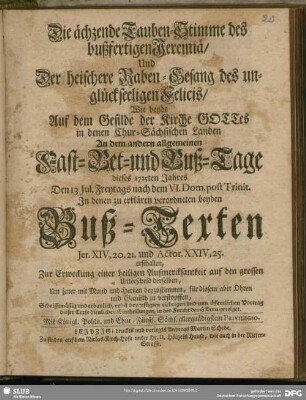 20
Die ächzende Tauben-Stimme des
bußfertigen Jeremiä/
Und
Der heischere Raben-Gesang des un-
glückseeligen Felicis/
Wie beyde
Auf dem Gefilde der Kirche GOTTes
in denen Chur-Sächsischen Landen
An dem andern allgemeinen
Fast-Bet-und Buß-Tage
dieses 1725ten Jahres
Den 13 Jul. Freytags nach dem VI. Dom. post Trinit.
In denen zu erklären verordneten beyden
Buß-Texten
Jer. XIV, 20. 21. und Actor. XXIV, 25.
erschallen,
Zur Erweckung einer heiligen Aufmercksamkeit auf den grossen
Unterscheid derselben,
Um jener mit Mund und Hertzen beyzustimmen, für diesem aber Ohren
und Gemüth zu verstopffen,
Mit Königl. Pohln. und Chur-Fürstl. Sächs. allergnädigstem PRIVILEGIO.
LEIPZIG, druckts und verlegts
Straße.
SLUB
DFG